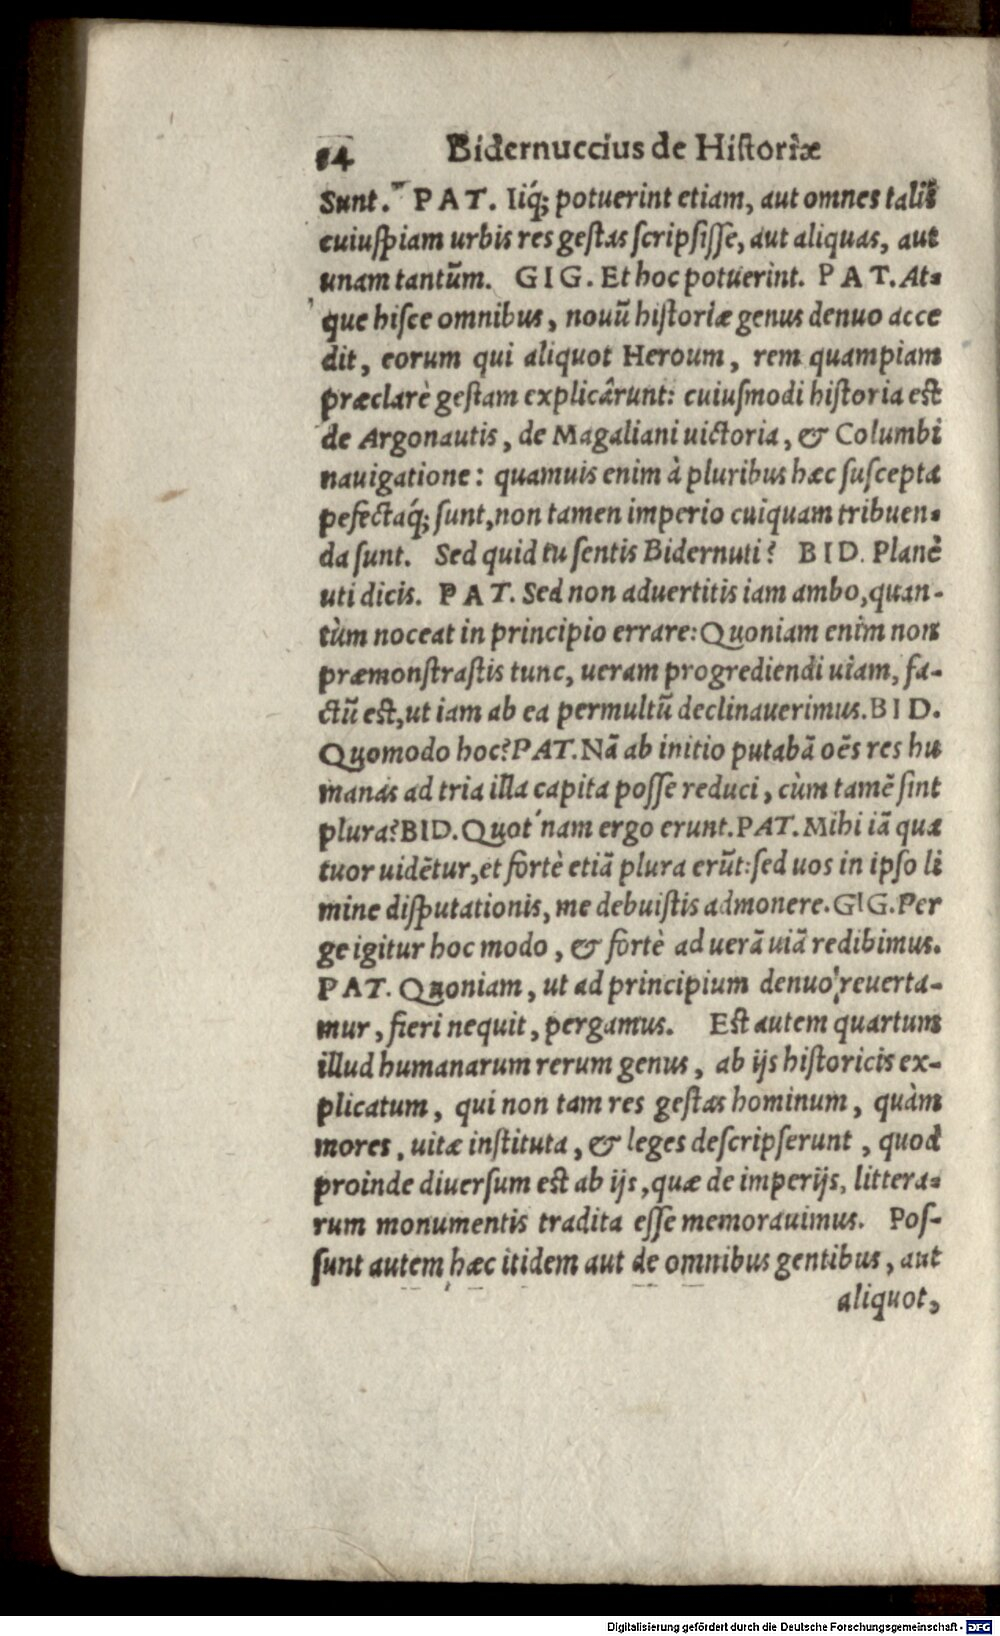 54 Bidernuccius de Historiæ
Sunt. PAT. Iiq́; potuerint etiam, aut omnes talis
cuiuſpiam urbis res geſtas ſcripſiſſe, aut aliquas, aut
unam tantũm. GIG. Et hoc potuerint. PAT. At-
que hiſce omnibus, nouũ hiſtoriæ genus denuo acce
dit, eorum qui aliquot Heroum, rem quampiam
præclarè geſtam explicârunt: cuiuſmodi hiſtoria eſt
de Argonautis, de Magaliani uictoria, & Columbi
nauigatione: quamuis enim à pluribus hæc ſuſcepta
pefectaq́; ſunt, non tamen imperio cuiquam tribuen-
da ſunt. Sed quid tu ſentis Bidernuti? BID. Planè
uti dicis. PAT. Sed non aduertitis iam ambo, quan-
tùm noceat in principio errare: Quoniam enim non
præmonſtraſtis tunc, ueram progrediendi uiam, fa-
ctũ eſt, ut iam ab ea permultũ declinauerimus. BID.
Quomodo hoc? PAT. Nã ab initio putabã oẽs res hu
manas ad tria illa capita poſſe reduci, cùm tamẽ ſint
plura? BID. Quot nam ergo erunt. PAT. Mihi iã qua
tuor uidẽtur, et fortè etiã plura erũt: ſed uos in ipſo li
mine diſputationis, me debuiſtis admonere. GIG. Per
ge igitur hoc modo, & fortè ad uerã uiã redibimus.
PAT. Quoniam, ut ad principium denuo reuerta-
mur, fieri nequit, pergamus. Eſt autem quartum
illud humanarum rerum genus, ab ijs hiſtoricis ex-
plicatum, qui non tam res geſtas hominum, quàm
mores, uitæ inſtituta, & leges deſcripſerunt, quod
proinde diuerſum eſt ab ijs, quæ de imperijs, littera-
rum monumentis tradita eſſe memorauimus. Poſ-
ſunt autem hæc itidem aut de omnibus gentibus, aut
aliquot,
Digitalisierung gefördert durch die Deutsche Forschungsgemeinschaft - DFG